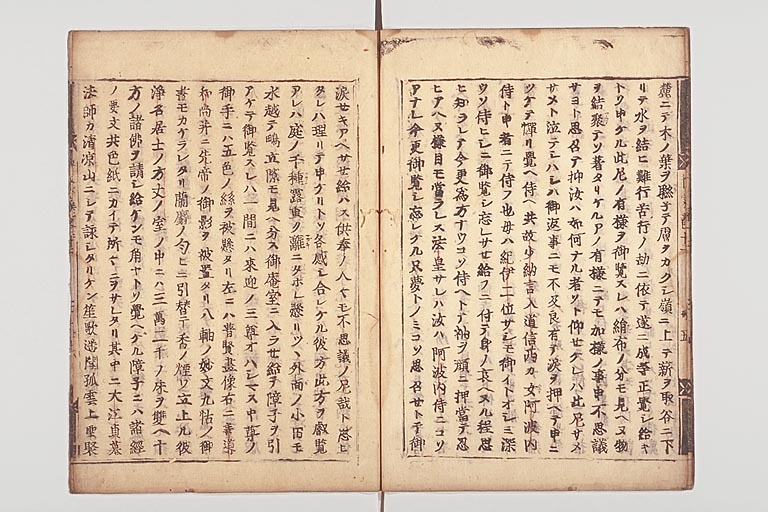 麓ニテ木ノ葉ヲ聯子テ膚ヲカクシ嶺ニ上テ薪ヲ取谷ニ下
リテ水ヲ結ヒ難行苦行ノ劫ニ依テ遂ニ成等正覺シ給キ
トソ申ケル此尼ノ有様ヲ御覽スレハ絹布ノ分モ見ヘヌ物
ヲ結聚テソ著タリケルアノ有様ニテモ加様ノ事申不思議
サヨト思召テ抑汝ハ如何ナル者ソト仰セケレハ此尼サメ
サメト泣テシハシハ御返事ニモ不及良有テ涙ヲ押ヘテ申ニ
ツケテ憚リ覺ヘ侍ヘ共故少納言入道信西カ女阿波内
侍ト申者ニテ侍フ也母ハ紀伊二位サシモ御イトオシミ深
ウソ侍ヒシニ御覽シ忘レサセ給フニ付テ身ノ衰ヘヌル程思
ヒ知ラレテ今更爲方ナウコソ侍ヘトテ袖ヲ顔ニ押當テ忍
ヒアヘヌ様目モ當ラレス法皇サレハ汝ハ阿波内侍ニコソ
アナレ今更御覽シ忘レケル只夢トノミコソ思召セトテ御
涙セキアヘサセ給ハス供奉ノ人々モ不思議ノ尼哉ト思ヒ
タレハ理リテ申ケリトソ各感シ合レケル彼方此方ヲ叡覽
アレハ庭ノ千種露重ク籬ニタホレ懸リツヽ外面ノ小田モ
水越テ鴫立隙モ見ヘ分ス御庵室ニ入ラセ給テ障子ヲ引
アケテ御覽スレハ一間ニハ來迎ノ三尊オハシマス中尊ノ
御手ニハ五色ノ絲ヲ被懸タリ左ニハ普賢畫像右ニ善導
和尚并ニ先帝ノ御影ヲ被置タリ八軸ノ妙文九帖ノ御
書モカケラレタリ蘭麝ノ匂ヒニ引替テ香ノ煙ソ立上ル彼
淨名居士ノ方丈ノ室ノ中ニハ三萬二千ノ床ヲ雙ヘ十
方ノ諸佛ヲ請シ給ケンモ角ヤトソ覺ヘケル障子ニハ諸經
ノ要文共色紙ニカイテ所々ニヲサレタリ其中ニ大江貞基
法師カ清凉山ニシテ詠シタリケン笙歌遥聞孤雲上聖聚